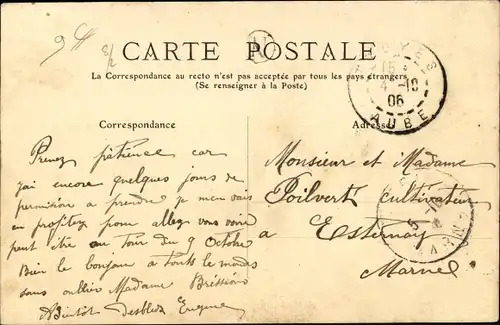 CARTE POSTALE
La Correspondance au recto n'est pas acceptée par tous les pays étrangers
(Se renseigner à la Poste)
Correspondance
Adresse
Prenez patience car
j'ai encore quelques jours de
permission a prendre je men vais
en profitez pour allez vous voir
peut être au tour du 9 Octobre
Bien le bonjour a touts le mondes
sans oublier Madame
Bientot Eugene
Monsieur et Madame
Poilvert cultivateur
a Esternay
Marne
4 -10
06
AUBE